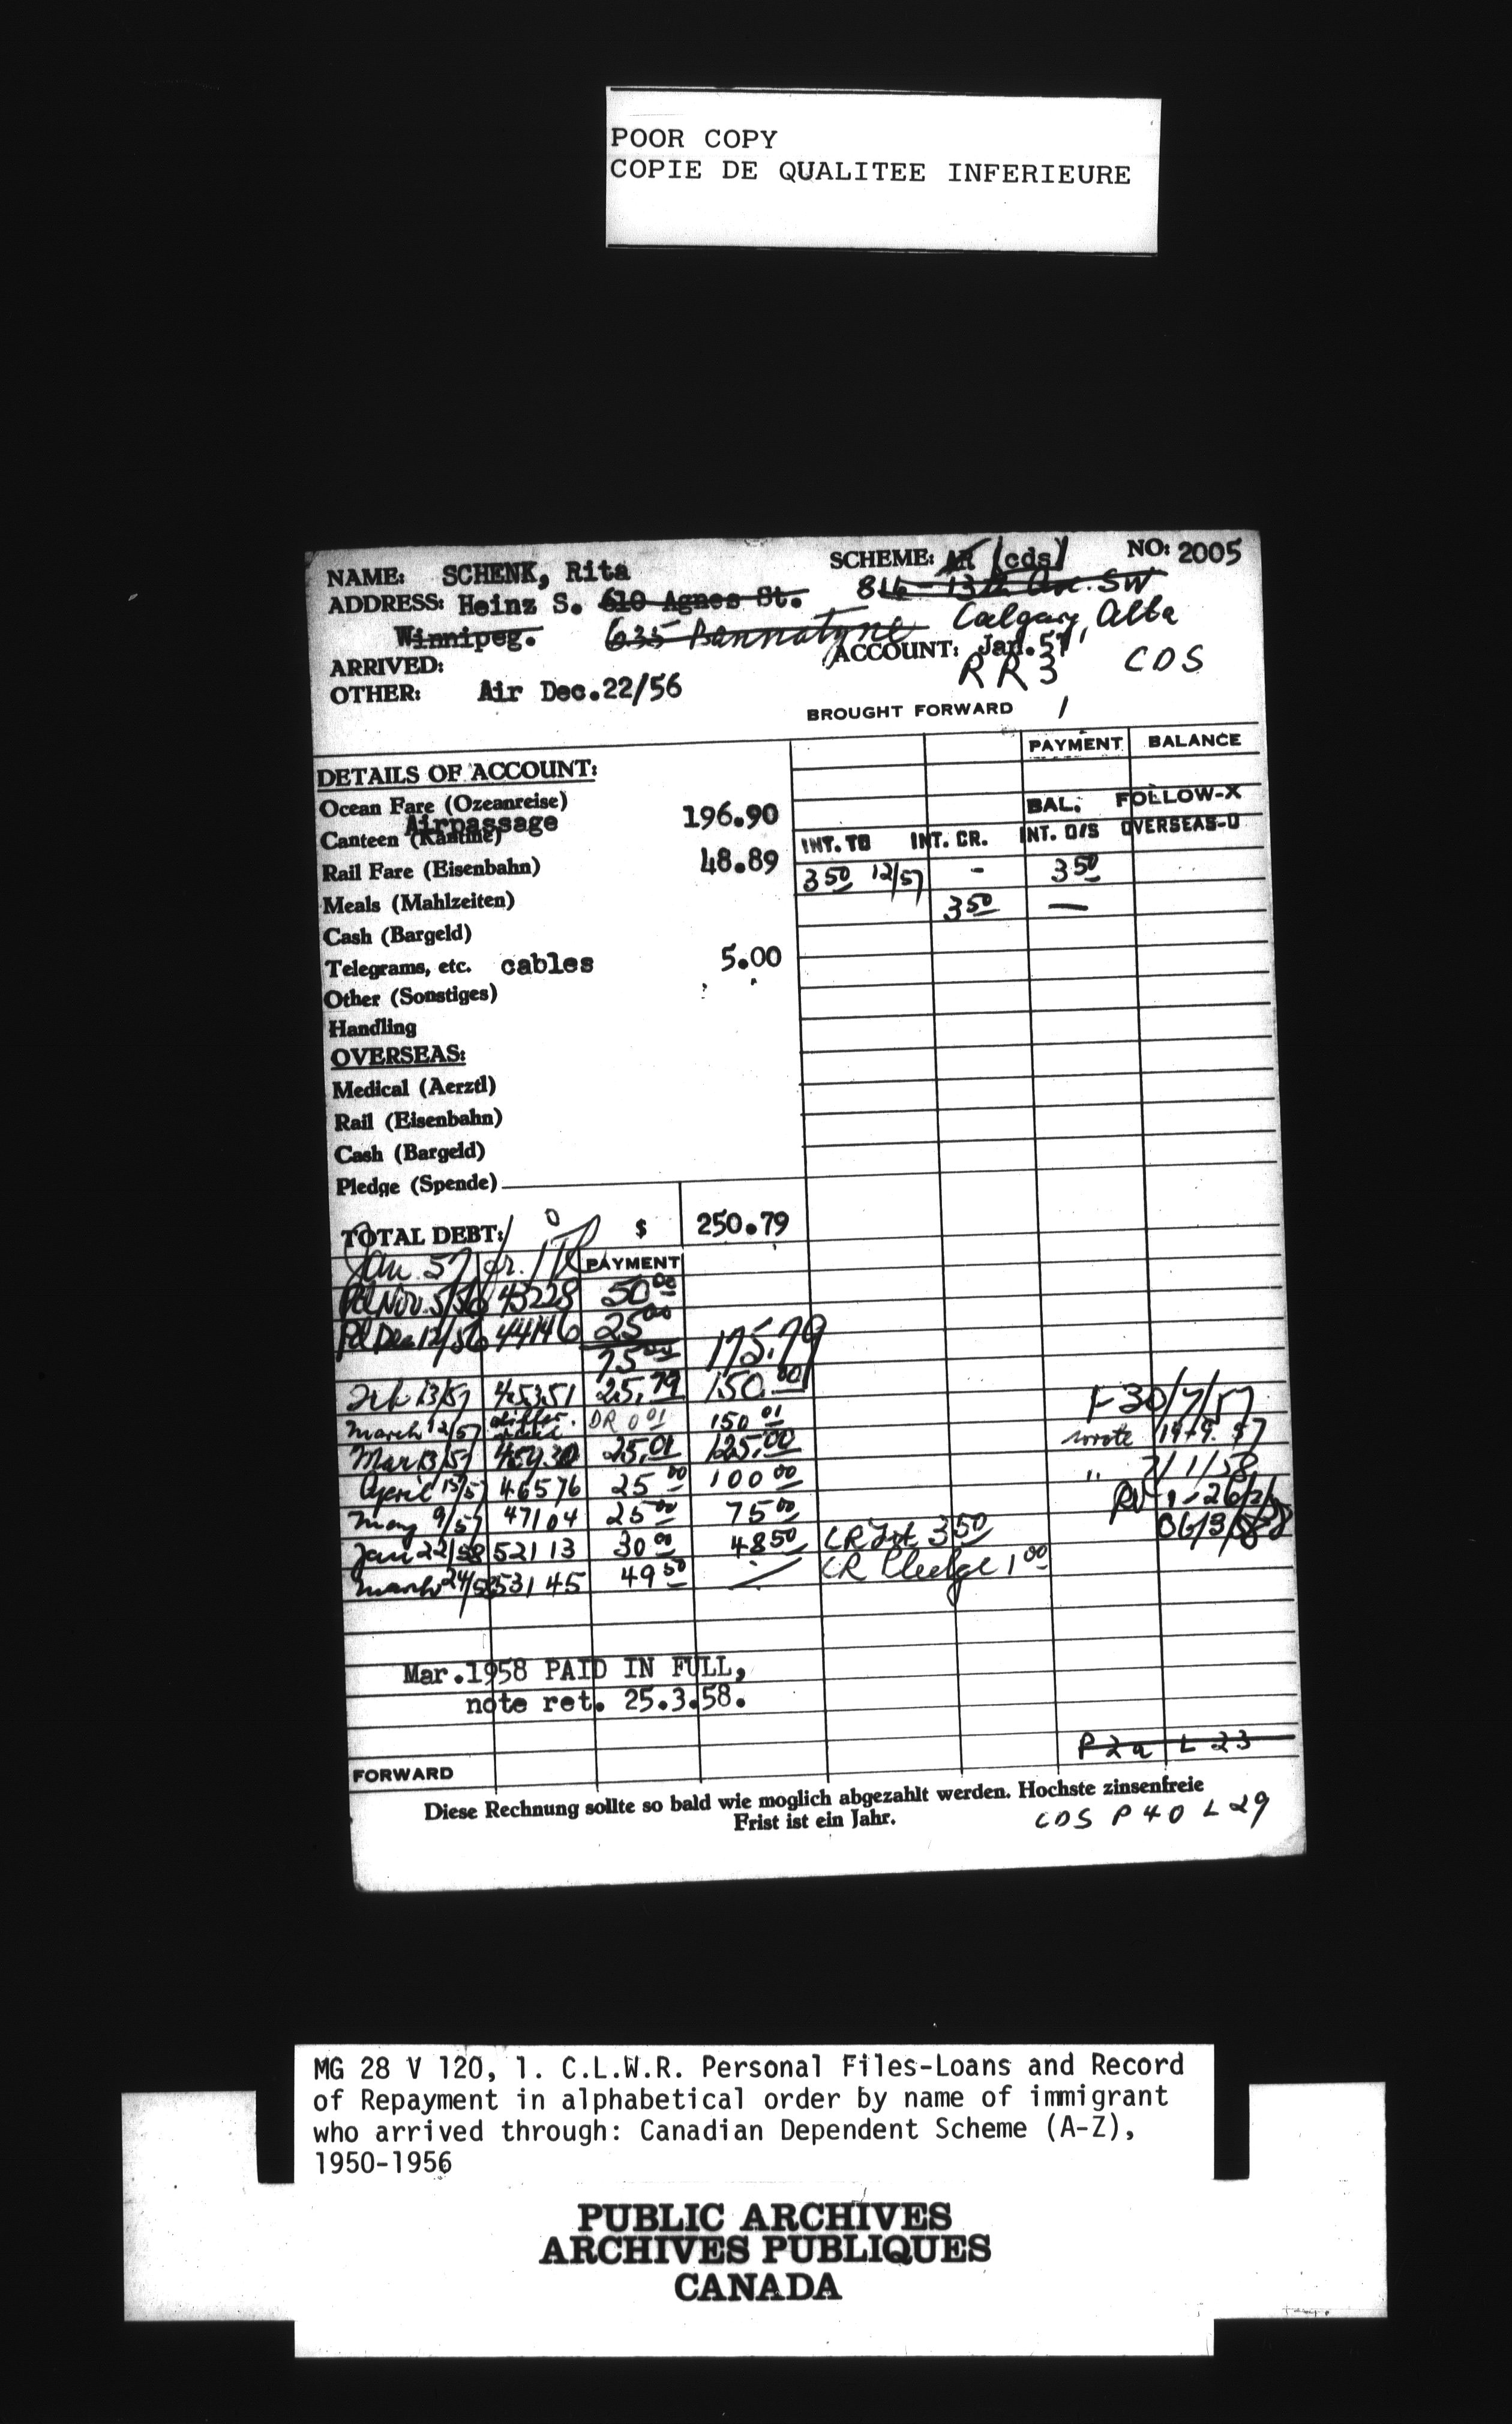 POOR COPY
COPIE DE QUALITEE INFERIEURE
NAME: SCHENK, Rita SCHEME: AR (cds) NO: 2005
ADDRESS: Heinz S. 610 Agnes St. 816 - 13th Ave. SW
Winnipeg. 635 Bannatyne Calgary, Alta
ARRIVED: ACCOUNT: Jan. 57 CDS
OTHER: Air Dec.22/56 RR3
BROUGHT FORWARD 1
PAYMENT BALANCE
DETAILS OF ACCOUNT:
Ocean Fare (Ozeanreise) 196.90 BAL: FOLLOW-X
Airpassage
Canteen (Kantine) INT. TO INT. CR. INT. O/S OVERSEAS-O
Rail Fare (Eisenbahn) 48.89 3 50 12/57 - 3 50
Meals (Mahlzeiten) 3 50 —
Cash (Bargeld)
Telegrams, etc. cables 5.00
Other (Sonstiges)
Handling
OVERSEAS:
Medical (Aerztl)
Rail (Eisenbahn)
Cash (Bargeld)
Pledge (Spende)
TOTAL DEBT: $ 250.79
Jan. 57 PAYMENT
Pd Nov. 5/56 43228 50 00
Pd Dec 12/56 44146 25 00
75 00 175.79
Feb 13/57 45351 25,79 150.00 F 30/7/57
March 12/57 differ. DR 0 01 150 01 wrote 19.9.57
Mar 13/57 25,01 125,00 " 2/1/58
April 15/57 46576 25 00 100 00
May 9/57 47104 25 00 75 00
Jan 22/58 52113 30 00 48 50 CR Int 3 50
March 24/58 53145 49 50 CR Pledge 1 00
Mar.1958 PAID IN FULL,
note ret. 25.3.58.
P 2a L 23
FORWARD
Diese Rechnung sollte so bald wie moglich abgezahlt werden. Hochste zinsenfreie
Frist ist ein Jahr. CDS P 40 L 29
MG 28 V 120, 1. C.L.W.R. Personal Files-Loans and Record
of Repayment in alphabetical order by name of immigrant
who arrived through: Canadian Dependent Scheme (A-Z),
1950-1956
PUBLIC ARCHIVES
ARCHIVES PUBLIQUES
CANADA